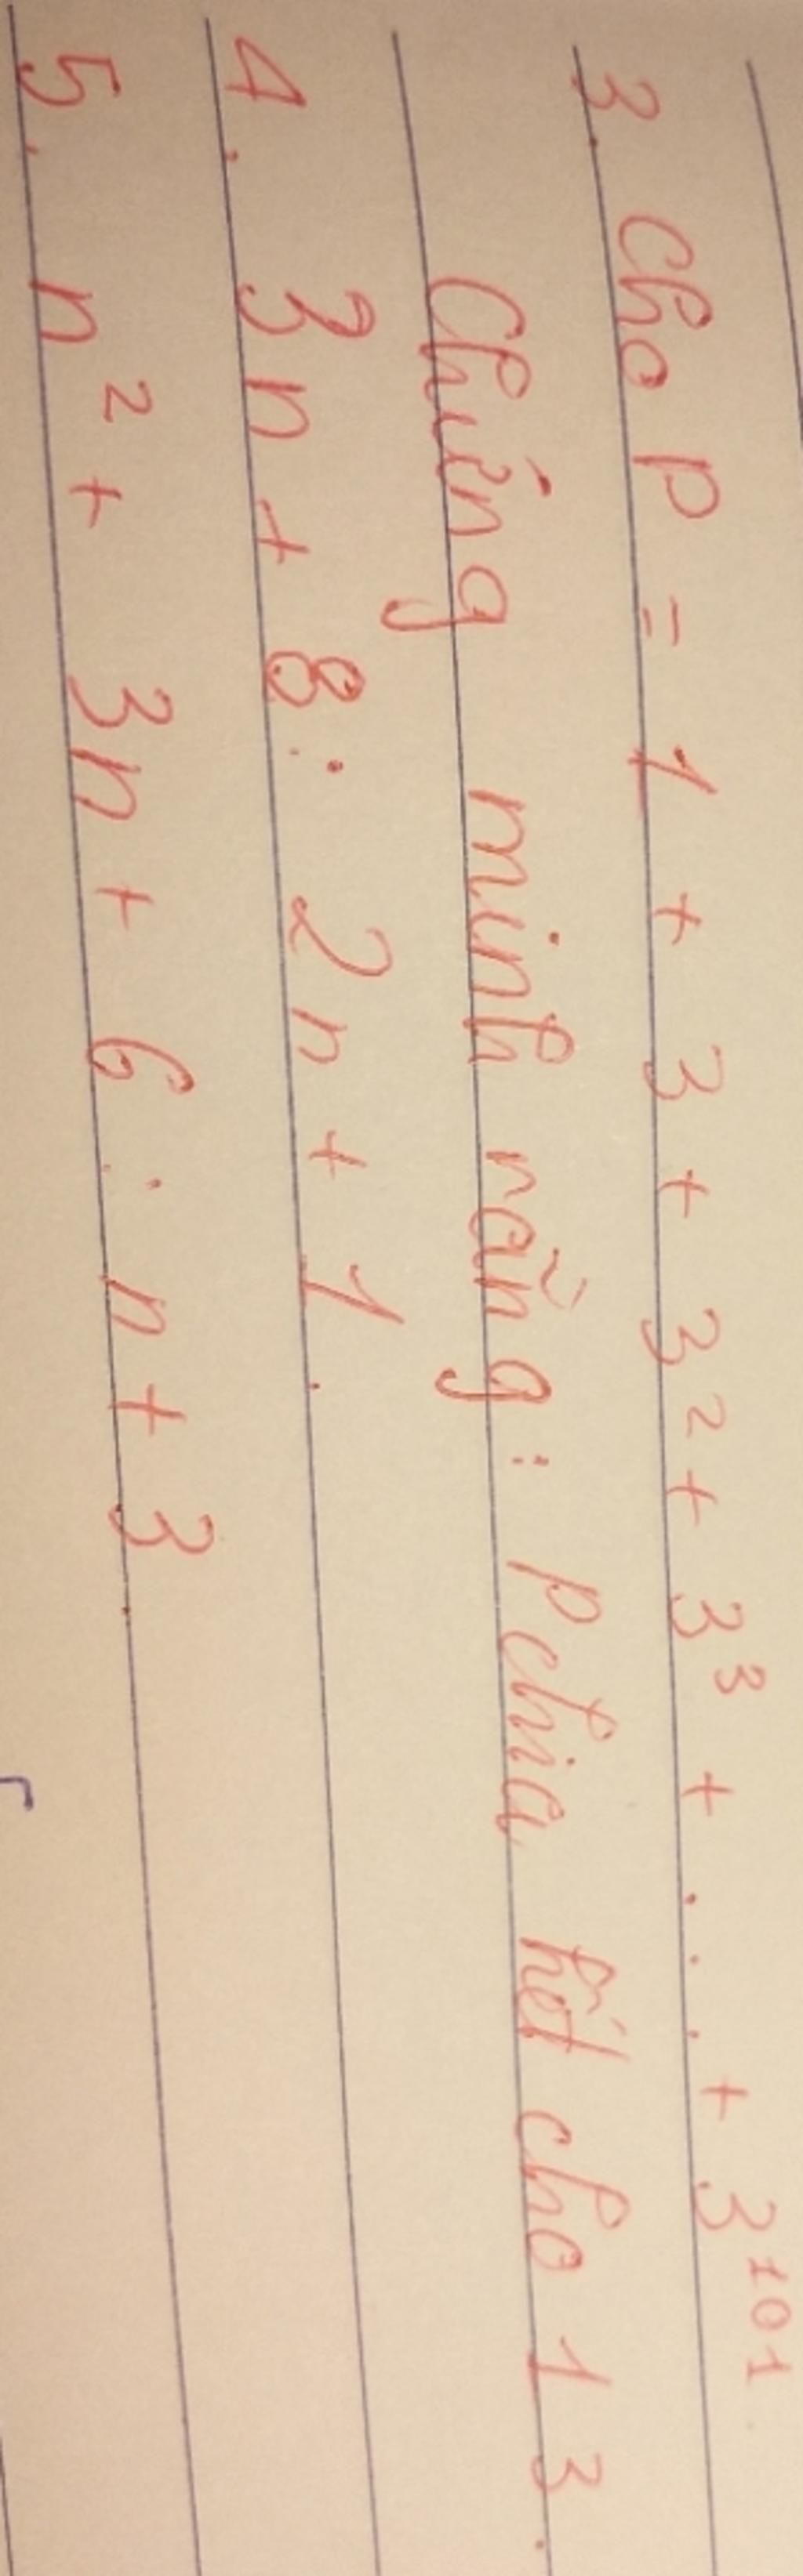 3. Cho P = 1 + 3 + 3² + 3³ + ... + 3¹⁰¹.
Chứng minh rằng: P chia hết cho 13.
4. 3n + 8 : 2n + 1.
5. n² + 3n + 6 : n + 3.